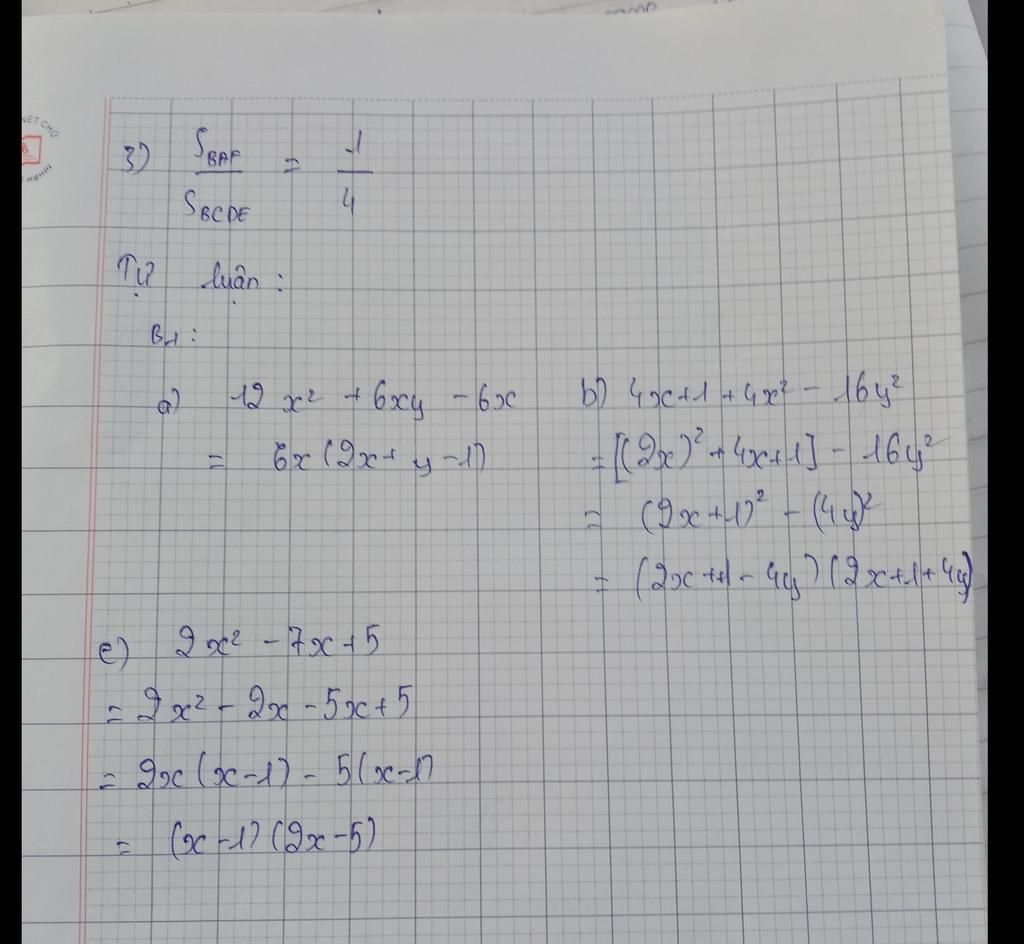 3) S_BAF / S_BCDE = 1/4
Tự luận :
B1 :
a) 12x² + 6xy - 6x
= 6x(2x + y - 1)
b) 4x+1+4x² - 16y²
= [(2x)² + 4x+1] - 16y²
= (2x+1)² - (4y)²
= (2x+1 - 4y)(2x+1+4y)
c) 2x² - 7x + 5
= 2x² - 2x - 5x + 5
= 2x(x-1) - 5(x-1)
= (x-1)(2x-5)